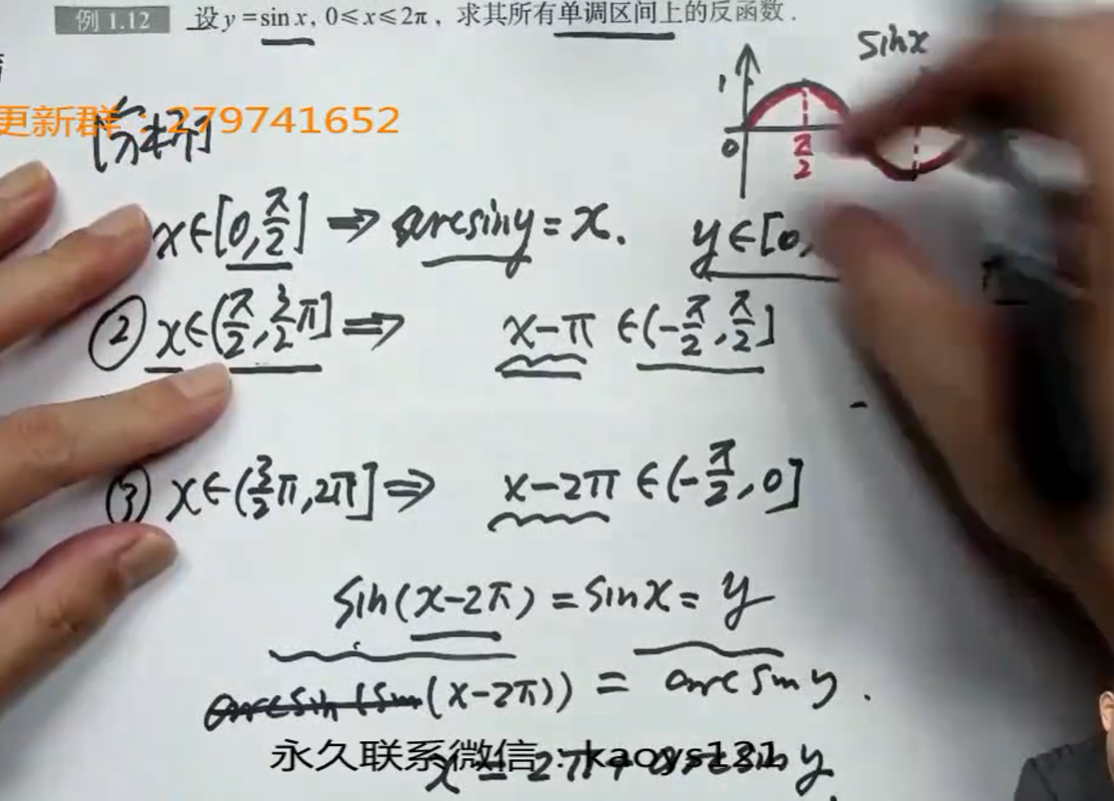 例 1.12 设 y = sin x, 0⩽x⩽2π, 求其所有单调区间上的反函数.
sinx
1
0 π/2
更新群：279741652
[分析]
x∈[0,π/2] ⇒ arcsiny=x. y∈[0,
② x∈(π/2,3/2π] ⇒ x-π ∈(-π/2,π/2]
③ x∈(3/2π,2π] ⇒ x-2π ∈(-π/2,0]
sin(x-2π)=sinx=y
arcsin(sin(x-2π)) = arcsiny.
永久联系微信：kaoys131
x = 2π+arcsiny.